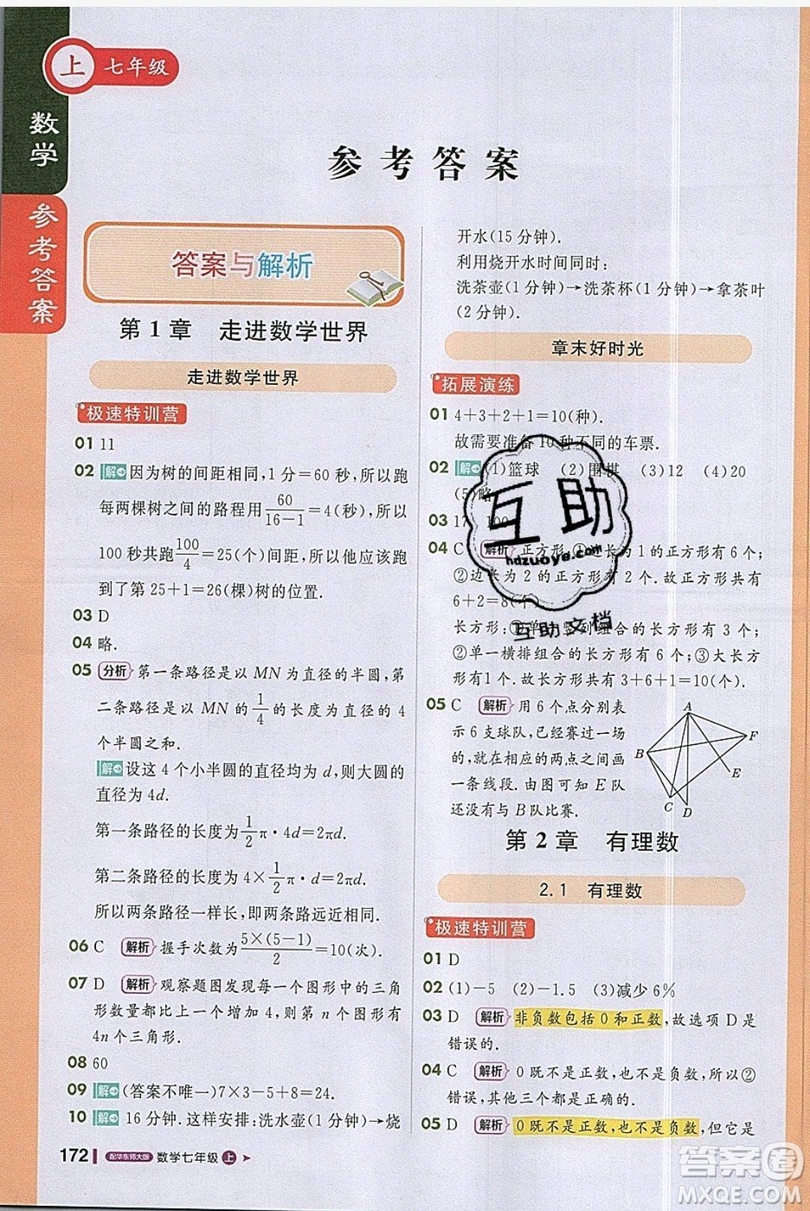 上 七年级
数学
参考答案
参考答案
答案与解析
第1章 走进数学世界
走进数学世界
极速特训营
01 11
02 解 因为树的间距相同,1分=60秒,所以跑
每两棵树之间的路程用60/(16-1)=4(秒),所以
100秒共跑100/4=25(个)间距,所以他应该跑
到了第25+1=26(棵)树的位置.
03 D
04 略.
05 分析 第一条路径是以MN为直径的半圆,第
二条路径是以MN的1/4的长度为直径的4
个半圆之和.
解 设这4个小半圆的直径均为d,则大圆的
直径为4d.
第一条路径的长度为1/2π·4d=2πd.
第二条路径的长度为4×1/2π·d=2πd.
所以两条路径的长度一样,即两条路远近相同.
06 C 解析 握手次数为5×(5-1)/2=10(次).
07 D 解析 观察题图发现每一个图形中的三角
形数量都比上一个增加4,则第n个图形有
4n个三角形.
08 60
09 解 (答案不唯一)7×3-5+8=24.
10 解 16分钟.这样安排:洗水壶(1分钟)→烧
开水(15分钟).
利用烧开水时间同时:
洗茶壶(1分钟)→洗茶杯(1分钟)→拿茶叶
(2分钟).
章末好时光
拓展演练
01 4+3+2+1=10(种).
故需要准备10种不同的车票.
02 解 (1)篮球 (2)围棋 (3)12 (4)20
(5)略
03 100
04 C 解析 正方形:①边长为1的正方形有6个;
②边长为2的正方形有2个.故正方形共有
6+2=8(
长方形:①单一竖列组合的长方形有3个;
②单一横排组合的长方形有6个;③大长方
形有1个.故长方形共有3+6+1=10(个).
05 C 解析 用6个点分别表
示6支球队,已经比赛一场
的就在相应的两点之间画一
条线段.由图可知E队
还没有与B队比赛.
A
B
F
E
C
D
第2章 有理数
2.1 有理数
极速特训营
01 D
02 (1)-5 (2)-1.5 (3)减少6%
03 D 解析 非负数包括0和正数,故选项D是
错误的.
04 C 解析 0既不是正数,也不是负数,所以②
错误,其他三个都是正确的.
05 D 解析 0既不是正数,也不是负数,但它是
172 配华东师大版 数学七年级 上
互助
hdzuoye.com
互助文档
答案圈
MXQE.COM